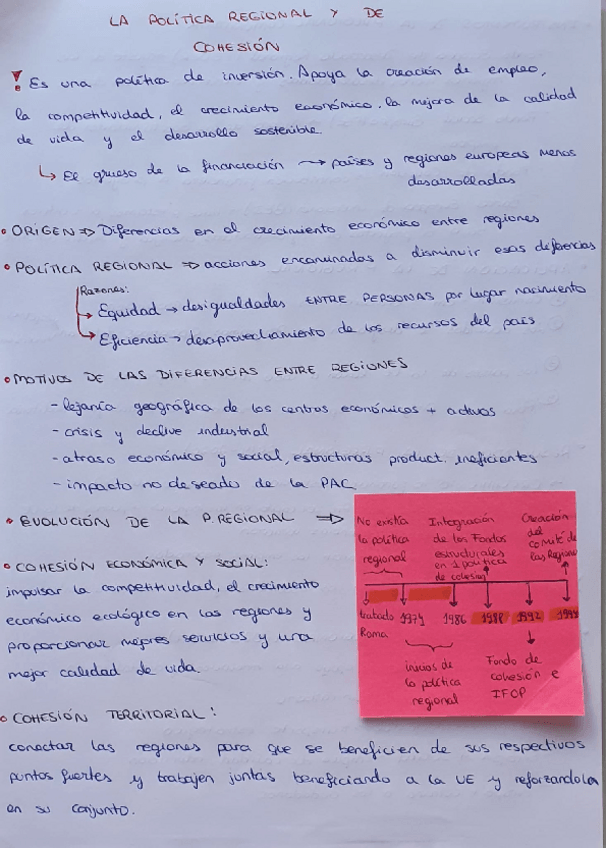 LA POLÍTICA REGIONAL Y DE
COHESIÓN
! Es una política de inversión. Apoya la creación de empleo,
la competitividad, el crecimiento económico, la mejora de la calidad
de vida y el desarrollo sostenible.
↳ El grueso de la financiación → países y regiones europeas menos
desarrolladas
• ORIGEN ⇒ Diferencias en el crecimiento económico entre regiones
• POLÍTICA REGIONAL ⇒ acciones encaminadas a disminuir esas diferencias
Razones:
↳ Equidad → desigualdades ENTRE PERSONAS por lugar nacimiento
↳ Eficiencia → desaprovechamiento de los recursos del país
• MOTIVOS DE LAS DIFERENCIAS ENTRE REGIONES
- lejanía geográfica de los centros económicos + activos
- crisis y declive industrial
- atraso económico y social, estructuras product. ineficientes
- impacto no deseado de la PAC
• EVOLUCIÓN DE LA P. REGIONAL ⇒
No existía
la política
regional
Integración
de los Fondos
estructurales
en 1 política
de cohesión
Creación
del
Comité de
las Regiones
tratado Roma 1974 1986 1988 1992 1994
inicios de
la política
regional
Fondo de
cohesión e
IFOP
• COHESIÓN ECONÓMICA Y SOCIAL:
impulsar la competitividad, el crecimiento
económico ecológico en las regiones y
proporcionar mejores servicios y una
mejor calidad de vida.
• COHESIÓN TERRITORIAL:
conectar las regiones para que se beneficien de sus respectivos
puntos fuertes y trabajen juntas beneficiando a la UE y reforzandola
en su conjunto.